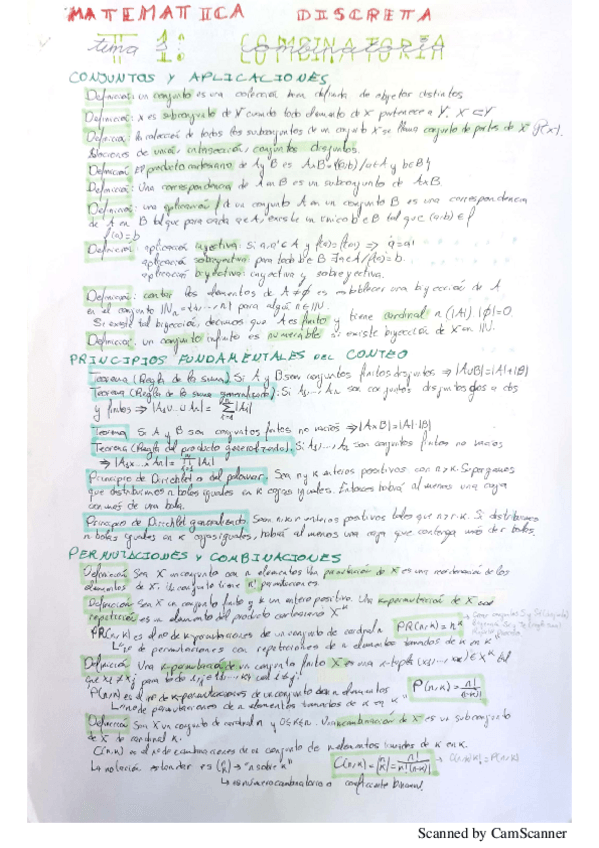 MATEMATICA DISCRETA
tema 1: COMBINATORIA
CONJUNTOS Y APLICACIONES
Definición: un conjunto es una colección bien definida de objetos distintos
Definición: X es subconjunto de Y cuando todo elemento de X pertenece a Y. X ⊂ Y
Definición: la colección de todos los subconjuntos de un conjunto X se llama conjunto de partes de X P(X).
Nociones de unión, intersección, conjuntos disjuntos.
Definición: El producto cartesiano de A y B es AxB={(a,b)/a∈A y b∈B}
Definición: Una correspondencia de A en B es un subconjunto de AxB.
Definición: una aplicación f de un conjunto A en un conjunto B es una correspondencia
de A en B tal que para cada a∈A, existe un único b∈B tal que (a,b)∈f
f(a)=b
Definición: aplicación inyectiva: Si a,a'∈A y f(a)=f(a') ⇒ a=a'
aplicación sobreyectiva: para todo b∈B ∃a∈A/f(a)=b
aplicación biyectiva: inyectiva y sobreyectiva.
Definición: contar los elementos de A≠∅ es establecer una biyección de A
en el conjunto ℕn={1,...,n} para algún n∈ℕ.
Si existe tal biyección, decimos que A es finito y tiene cardinal n (|A|). |∅|=0.
Definición: un conjunto infinito es numerable si existe biyección de X en ℕ.
PRINCIPIOS FUNDAMENTALES DEL CONTEO
Teorema (Regla de la suma) Si A y B son conjuntos finitos disjuntos ⇒ |A∪B|=|A|+|B|
Teorema (Regla de la suma generalizada): Si A1,...,An son conjuntos disjuntos dos a dos
y finitos ⇒ |A1∪...∪An|= Σ|Ai|
Teorema Si A y B son conjuntos finitos no vacíos ⇒ |AxB|=|A|·|B|
Teorema (Regla del producto generalizado). Si A1,...,An son conjuntos finitos no vacíos
⇒ |A1x...xAn|= Π|Ai|
Principio de Dirichlet o del palomar. Sean n y k enteros positivos con n>k. Supongamos
que distribuimos n bolas iguales en k cajas iguales. Entonces habrá al menos una caja
con más de una bola.
Principio de Dirichlet generalizado. Sean n,k,r enteros positivos tales que n>r·k. Si distribuimos
n bolas iguales en k cajas iguales, habrá al menos una caja que contenga más de r bolas.
PERMUTACIONES Y COMBINACIONES
Definición Sea X un conjunto con n elementos. Una permutación de X es una reordenación de los
elementos de X. Un conjunto tiene permutaciones.
Definición: Sean X un conjunto finito y k un entero positivo. Una k-permutación de X con
repetición es un elemento del producto cartesiano X^k
PR(n,k) es el nº de k-permutaciones de un conjunto de cardinal n. PR(n,k)=n^k
↳ nº de permutaciones con repeticiones de n elementos tomados de k en k
Definición Una k-permutación de un conjunto finito X es una k-tupla (x1,...,xk)∈X^k tal
que xi≠xj para todo
P(n,k) es el nº de k-permutaciones de un conjunto de n elementos P(n,k)=n!/(n-k)!
↳ nº de permutaciones de n elementos tomados de k en k
Definición Sean X un conjunto de cardinal n y 0≤k≤n. Una k-combinación de X es un subconjunto
de X de cardinal k.
C(n,k) es el nº de combinaciones de un conjunto de n elementos tomados de k en k.
↳ notación estándar es (n k) → "n sobre k" C(n,k)=(n k)=n!/k!(n-k)! → C(n,k)k!=P(n,k)
↳ número combinatorio o coeficiente binomial.
Scanned by CamScanner